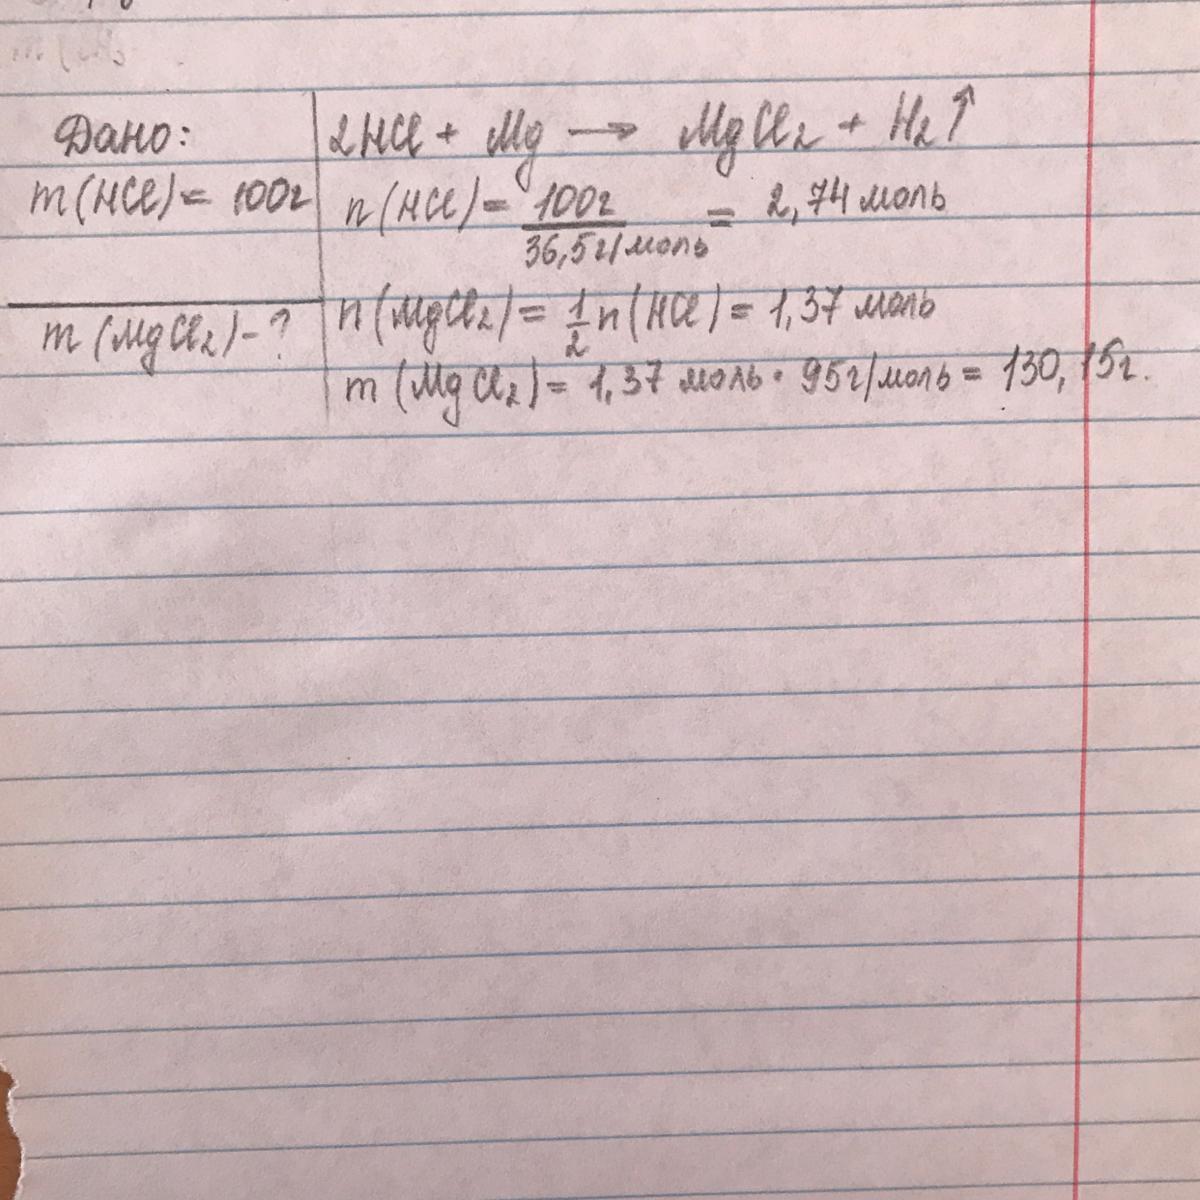 Дано:
m(HCl)= 100г
m(MgCl₂)-?
2HCl + Mg → MgCl₂ + H₂↑
n(HCl)= 100г / 36,5г/моль = 2,74 моль
n(MgCl₂)= 1/2 n(HCl)= 1,37 моль
m(MgCl₂)= 1,37 моль · 95г/моль = 130,15г.